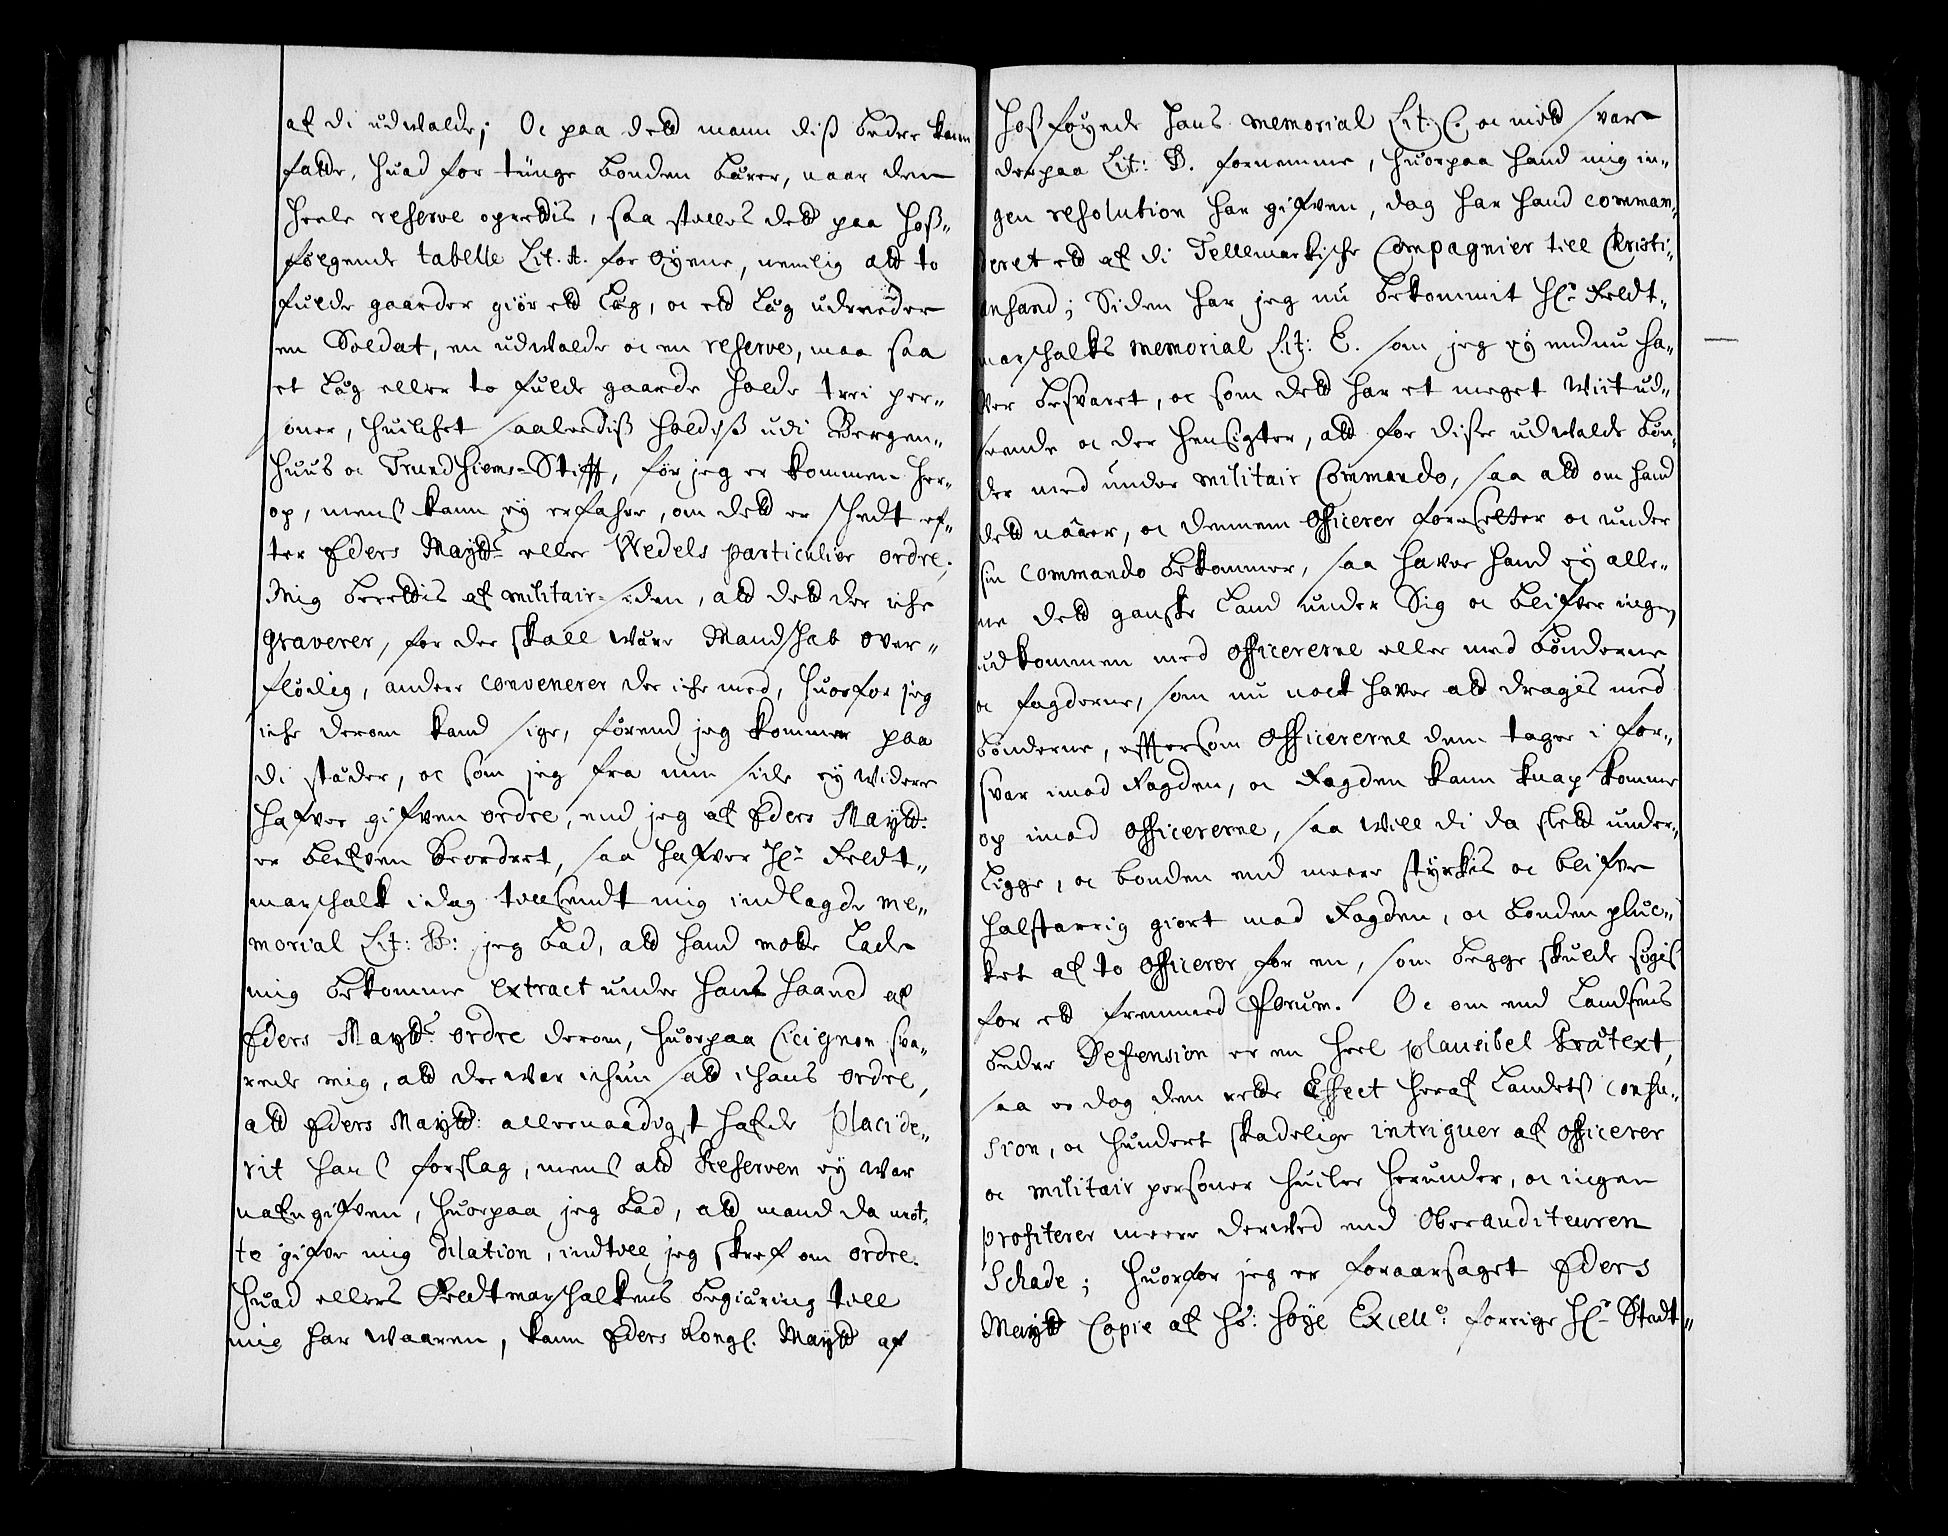 af di udwalde; Oc paa dett mann diss bedre kann
fatte, huad for tünge bonden bärer, naar den
heele reserve oprettis, saa stilles dett paa hoss-
følgende tabelle Lit. A. for øyene, nemlig att to
fulde gaarder giör ett Läg, oc ett Läg udreeder
en Soldat, en udwalde oc en reserve, maa saa
et Läg eller to fulde gaarde holde trei per-
soner, huilchet saalediss holdiss udi Bergen-
huus oc Trundhiems-Stifft, för jeg er kommen her-
op, mens kann ey erfahre, om dett er schedt ef-
ter Eders Maytts eller Wedels particulier ordre.
Mig berettis af militair-siden, att dett der iche
graverer, for der skall wäre Mandschab over-
flödig, andere convenerer der iche med, huorfor jeg
iche derom kand sige, förend jeg kommer paa
di städer, oc som jeg fra min side ey widere
hafver gifven ordre, end jeg af Eders Maytt:
er blefven beordret, saa hafver Hr Feldt-
marschalk idag tillsendt mig indlagde me-
morial Lit: B: jeg bad, att hand motte lade
mig bekomme extract under hans haand af
Eders Maytts ordre derom, huorpaa Cicignon sva-
rede mig, att der war ichun satt i hans ordre,
att Eders Maytt: allernaadigst hafde placide-
rit hans forslag, mens att Reserven ey war
nafngifven, huorpaa jeg bad, att mand da mot-
te gifve mig dilation, indtill jeg skref om ordre.
Huad ellers Feldtmarschalkens begiäring till
mig har waaren, kann Eders Kongl. Maytt af
hossföyede hans memorial Lit: C. oc mitt svar
derpaa Lit: D. fornemme, huorpaa hand mig in-
gen resolution har gifven, dog har hand comman-
deret ett af di Tellemarkische Compagnier till Christi-
ansand; Siden har jeg nu bekommit Hr Feldt-
marschalks memorial Lit: E. som jeg ey endnu ha-
ver besvaret, oc som dett har et meget wiit ud-
seende oc der hensigter, att for disse udwalde bön-
der med under militair Commando, saa att om hand
dett nåer, oc dennem Officerer foresetter oc under
sin Commando bekommer, saa haver hand ey alle-
ne dett ganske Land under Sig oc blifver ingen
udkommen med Officererne eller med bönderne
oc fogderne, som nu nock haver att dragis med
bönderne, efftersom Officererne dem tager i for-
svar imod Fogden, oc Fogden kann knap komme
op imod Officererne, saa will di da slett under-
ligge, oc bonden end meere styrkis oc blifve
halstarrig giort mod Fogden, oc bonden pluc-
ket af to Officerer for en, som begge skulde sögis
for ett fremmed Forum. Oc om end Landsens
bedre Defension er en heel plausibel Prätext,
saa er dog den rette Effect heraf Landets confu-
sion, oc hundert skadelige intriguer af Officerer
oc militair personer huiler herunder, oc ingen
profiterer meere derved end Oberauditeuren
Schade; Huorfor jeg er foraarsaget Eders
Maytt Copie af Hs: höye Excell: forrige Hr Stadt-